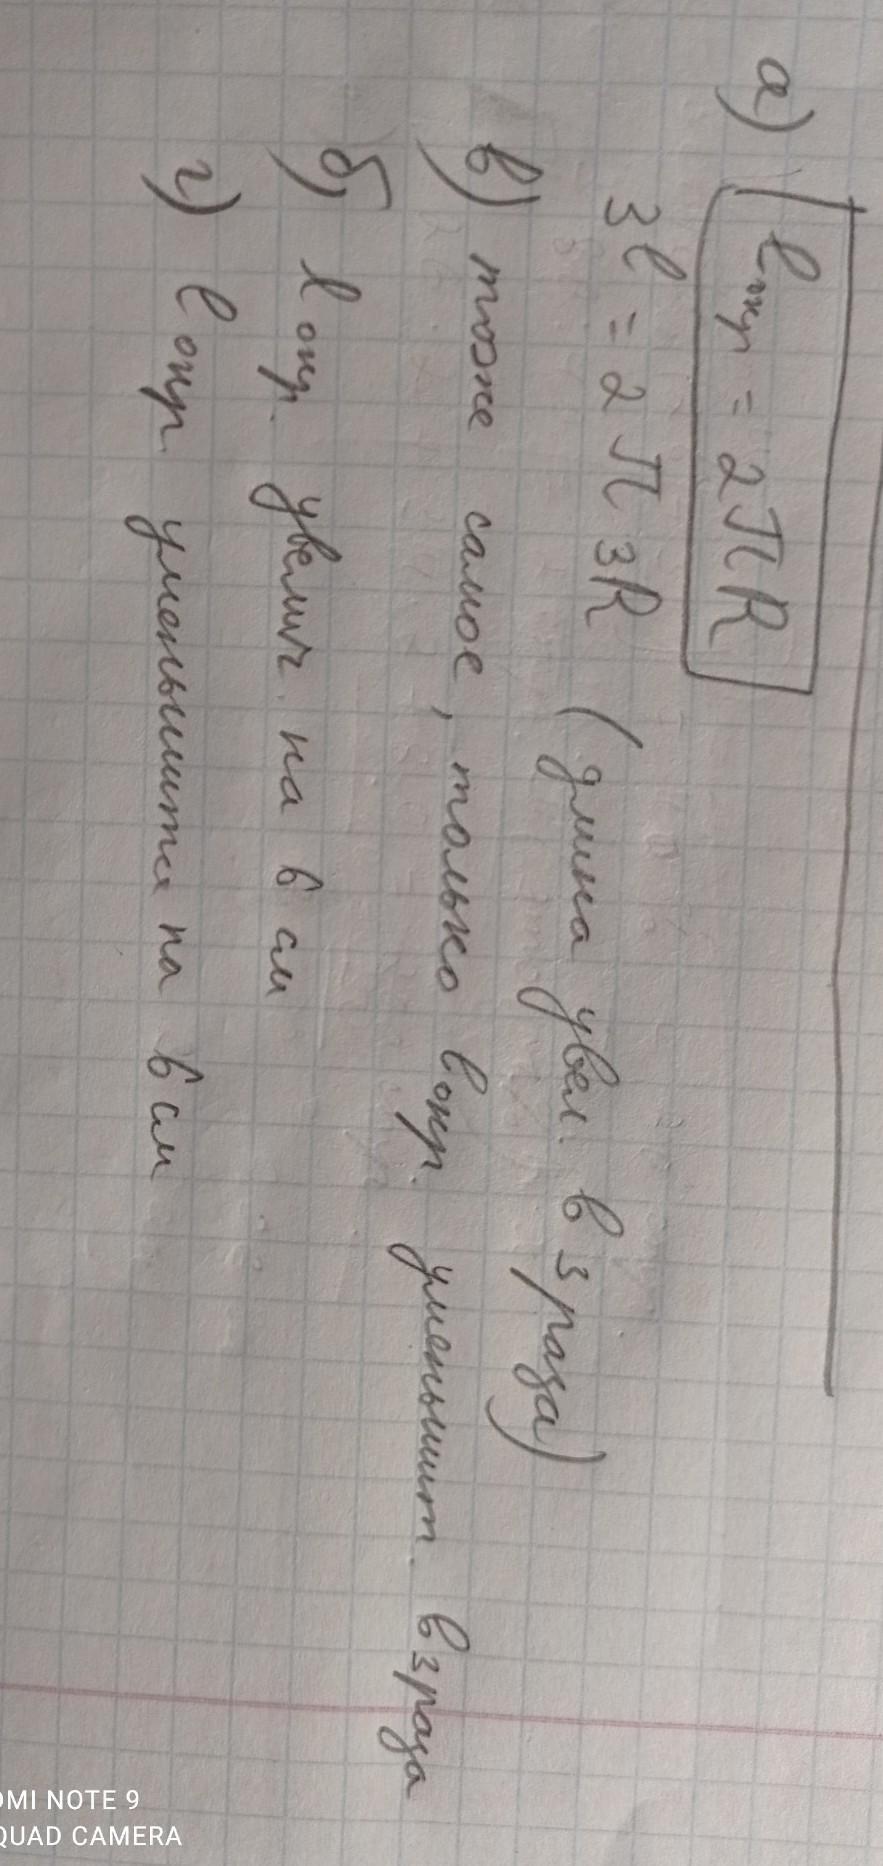 а) lокр = 2ПR
3l = 2П3R (длина увел. в 3 раза)
в) тоже самое, только lокр. уменьшит. в 3 раза
б) lокр. увелич. на 6 см
г) lокр. уменьшится на 6 см
OMI NOTE 9
QUAD CAMERA